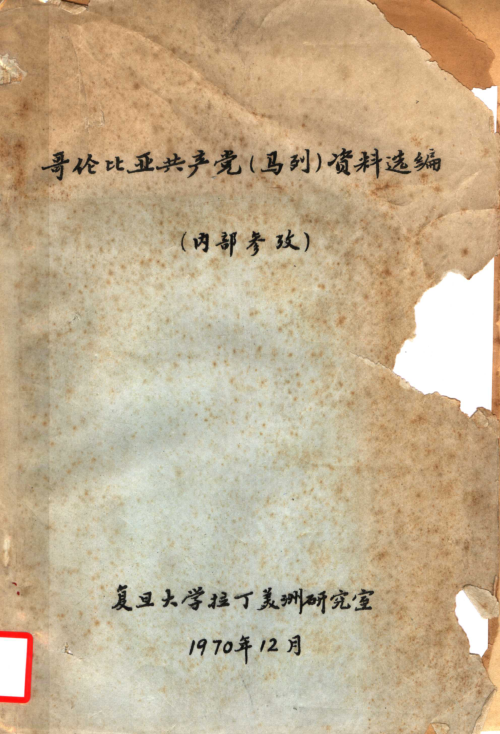 哥伦比亚共产党(马列)资料选编
(内部参攷)
复旦大学拉丁美洲研究室
1970年12月